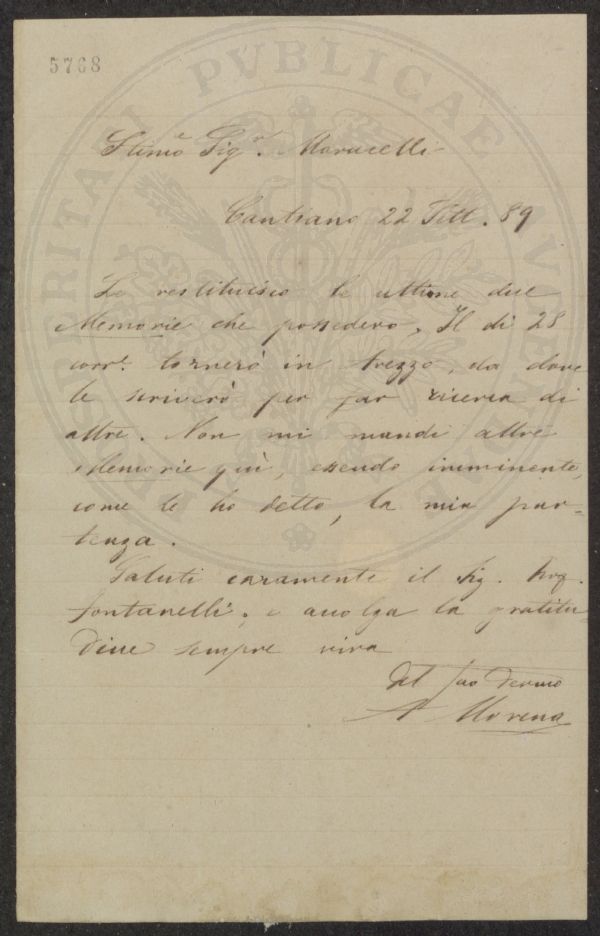 5768
PROSPERITATI PVBLICAE
Stimo Sigr. Marucelli
Cantiano 22 Sett. 89
Le restituisco le ultime due
Memorie che possedevo. Il dì 28
corrte. tornerò in Arezzo, da dove
le scriverò per far ricerca di
altre. Non mi mandi altre
Memorie quì, essendo imminente,
come le ho detto, la mia par-
tenza.
Saluti caramente il Sig.
Fontanelli, e accolga la gratitu-
dine sempre viva
del suo devmo
A Morena